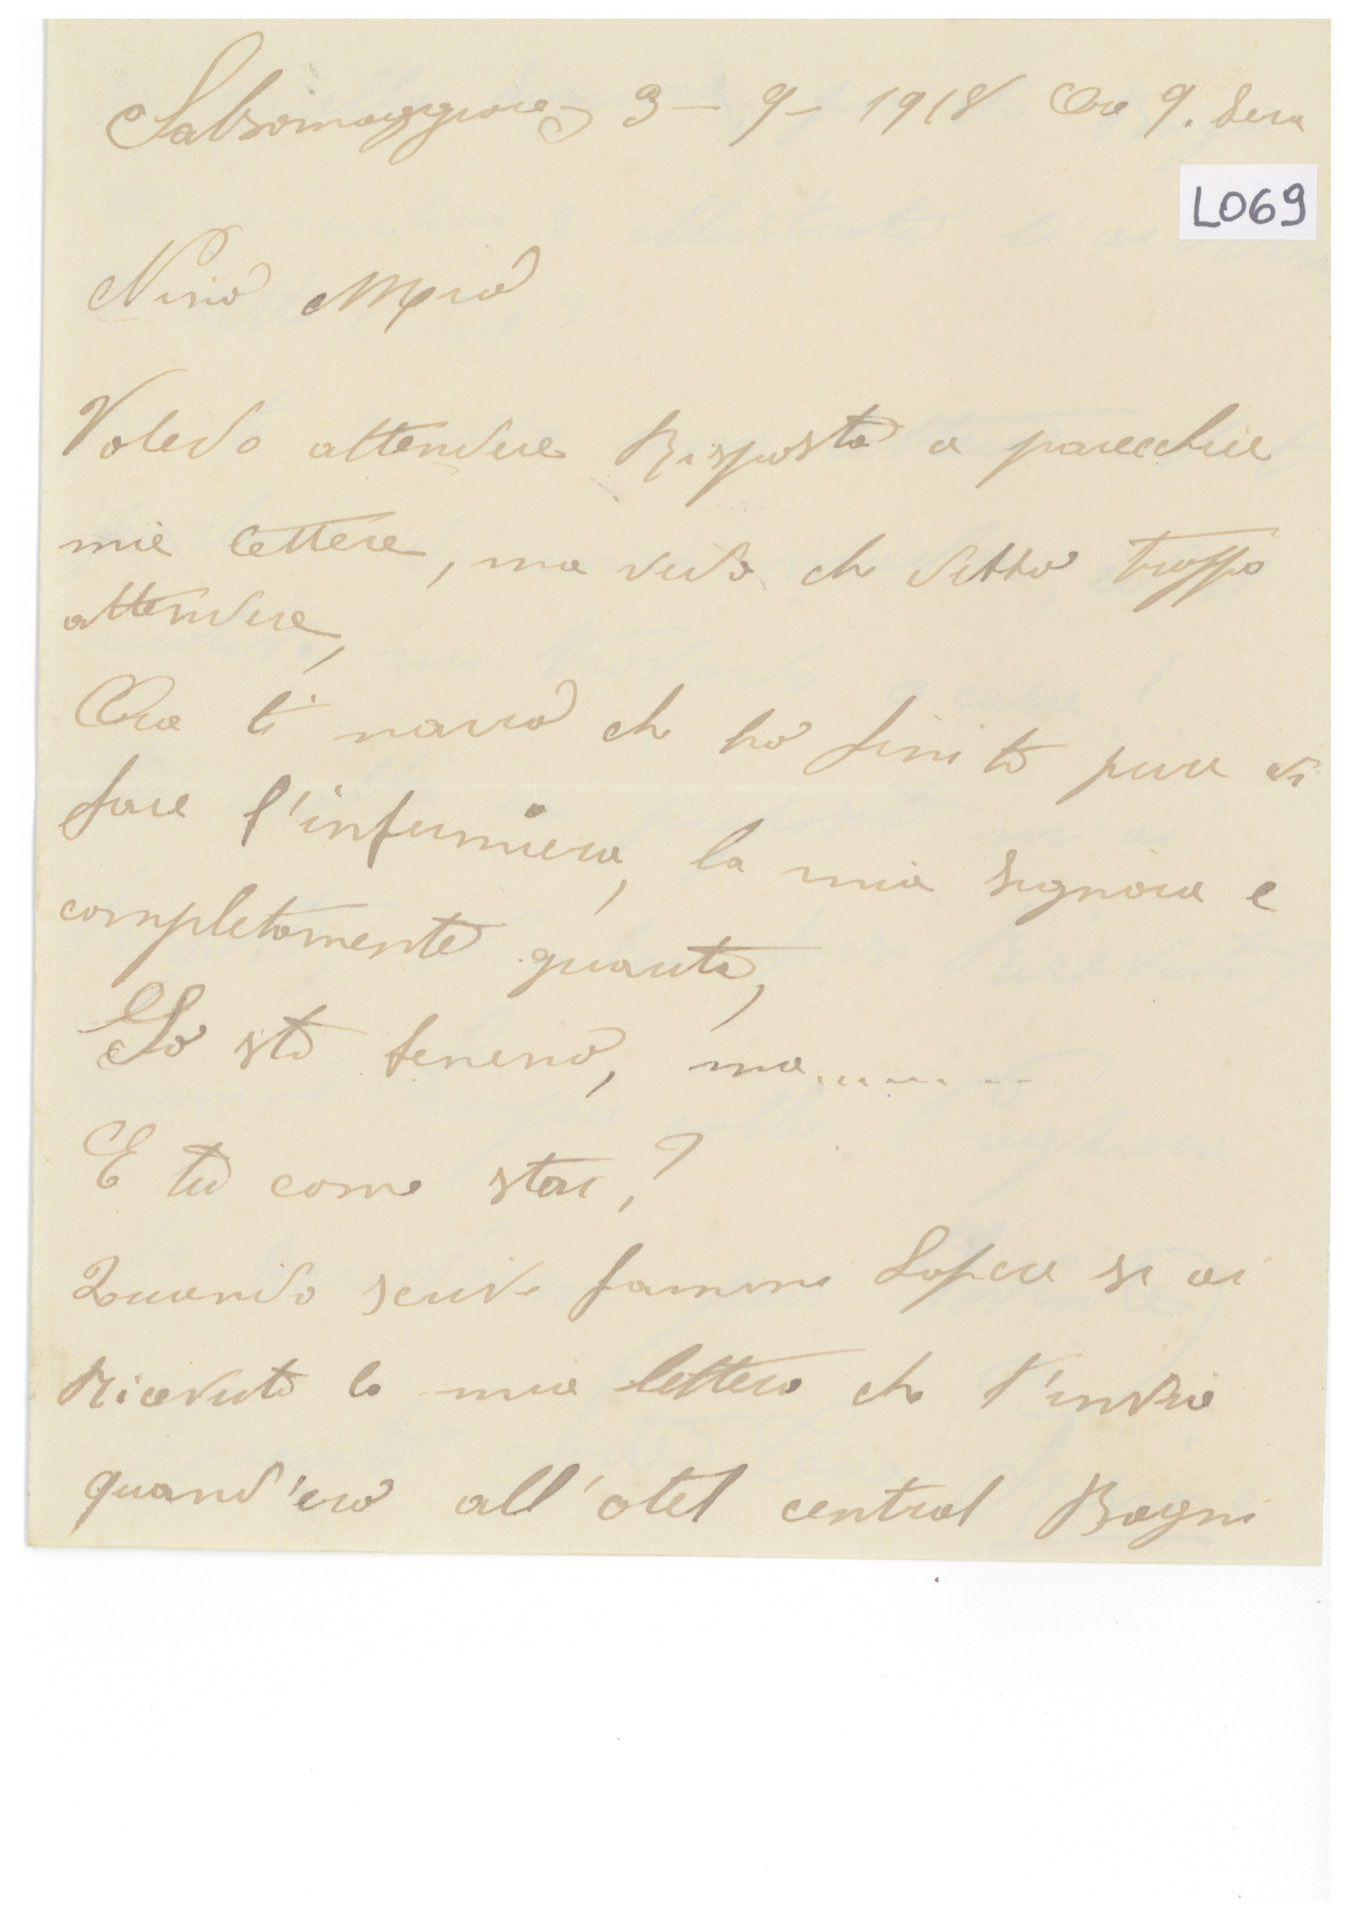 Salsomaggiore 3 - 9 - 1918 Ora 9. Sera
L069
Nino Mio
Volevo attendere Risposta a parecchie
mie lettere, ma vedo che debbo troppo
attendere,
Ora ti narro che ho finito pure di
fare l'infermiera, la mia signora e
completamente guarita,
Io sto benino, ma.........
E tu come stai,?
Quando scrivi fammi Sapere se ai
Ricevuto la mia lettera che t'inviai
quand'ero all'otel central Bagni